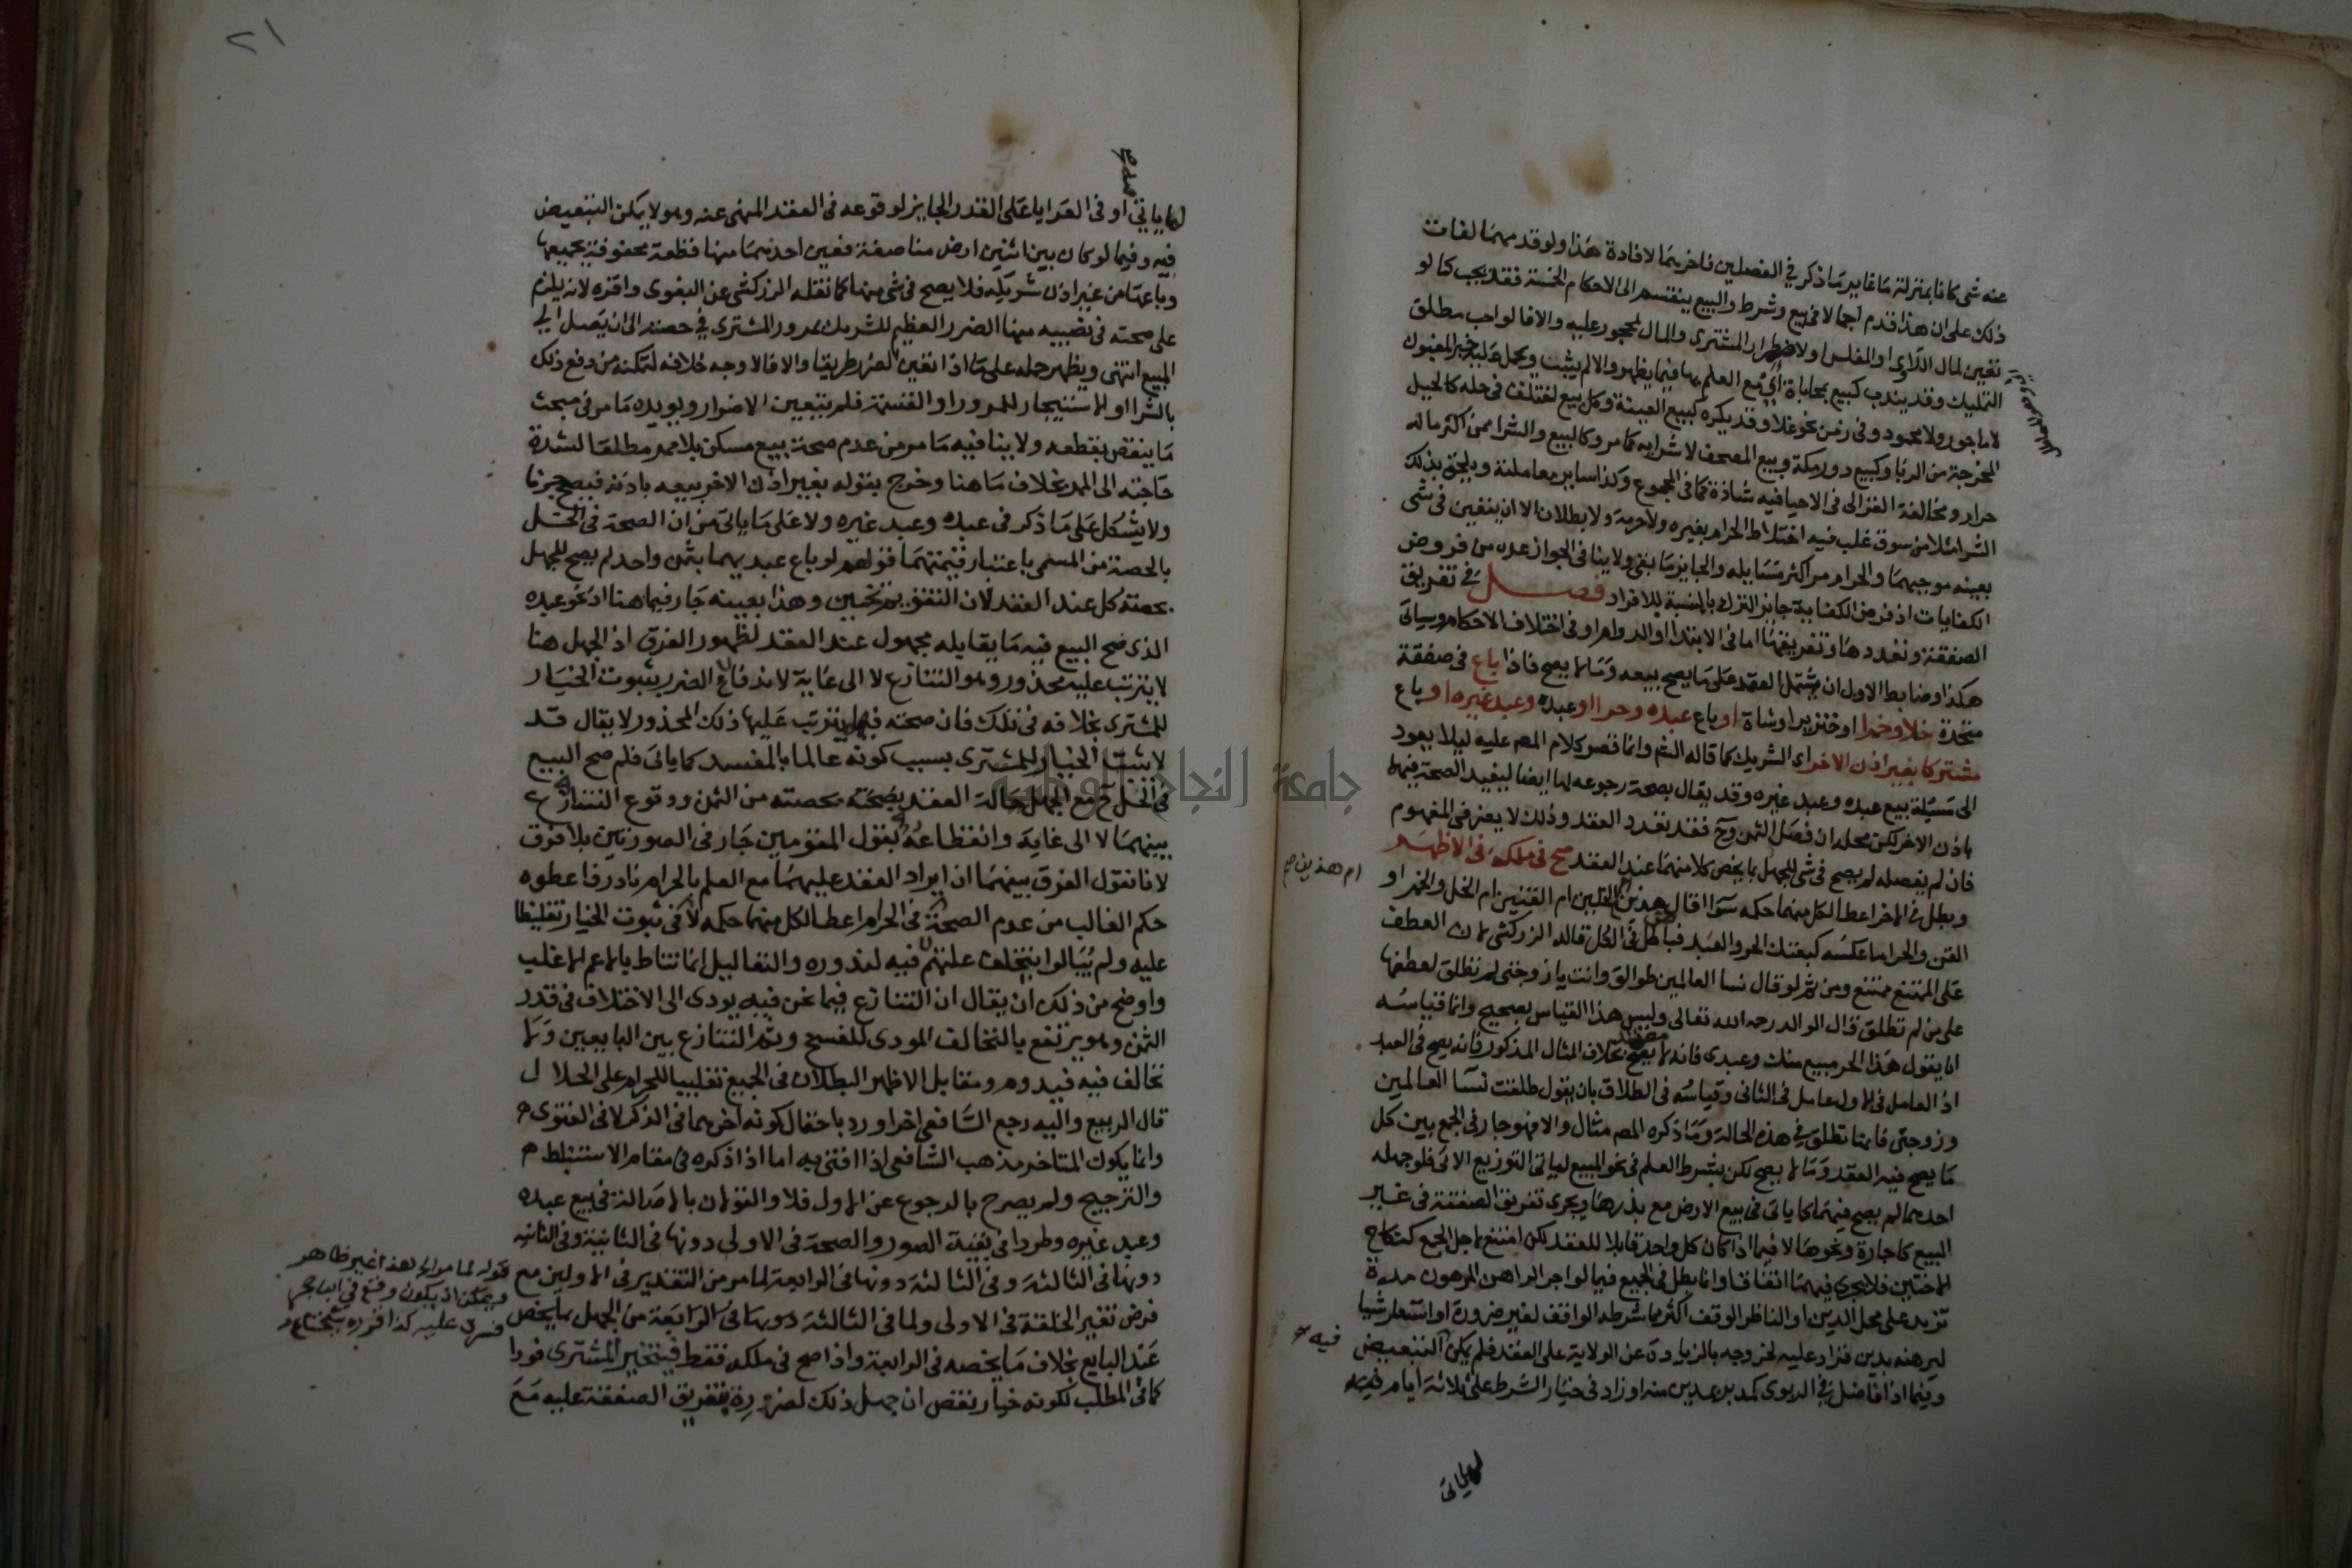 عنه شي كانا بمنزلة ما غاير ما ذكر في الفصلين فاخرهما لافادة هذا ولو قدمهما لفات
ذلك على ان هذا قدم اجمالا في بيع وشرط والبيع ينقسم الى الاحكام الخمسة فقد يجب كما لو
تعين لمال المفلس او لاضطرار المشتري والمال لمحجور عليه والا فالواجب مطلق
التمليك وقد يندب كبيع بمحاباة اي مع العلم بها فيما يظهر والا لم يثب ويحمل عليه خبر المغبون
لا ماجور ولا محمود وفي زمن نحو غلا وقد يكره كبيع العينة وكل بيع اختلف في حله كالحيل
المخرجة من الربا وكبيع دور مكة وبيع المصحف لا شرايه كما مر وكالبيع والشرا ممن اكثر ماله
حرام ومخالفة الغزالي في الاحيا فيه شاذة كما في المجموع وكذا ساير معاملته ويلحق بذلك
الشرا مثلا من سوق غلب فيه اختلاط الحرام بغيره ولا حرمة ولا بطلان الا ان يتعين في شي
بعينه موجبهما والحرام مر اكثر مسايله والجايز ما بقي ولا ينافي الجواز عده من فروض
الكفايات اذ فرض الكفاية جايز الترك بالنسبة للافراد فصل في تفريق
الصفقة وتعددها وتفريقها اما في الابتدا او الدوام او في اختلاف الاحكام وسياتي
هكذا وضابط الاول ان يشتمل العقد على ما يصح بيعه وما لا يصح فاذا باع في صفقة
متحدة خلا وخمرا او خنزيرا وشاة او باع عبده وحرا او عبده وعبد غيره او باع
مشتركا بغير اذن الاخر اي الشريك كما قاله الشم وانما قصر كلام المص عليه ليلا يعود
الى مسئلة بيع عبده وعبد غيره وقد يقال بصحة رجوعه لها ايضا ليفيد الصحة فيها
باذن الاخر لكن محله ان فصل الثمن وح فقد تعدد العقد وذلك لا يعرف في المفهوم
فان لم يفصله لم يصح في شي للجهل بما يخص كلا منهما عند العقد صح في ملكه في الاظهر
وبطل في الاخر اعطا لكل منهما حكمه سوا اقال هذين الخلين ام القنين ام الخل والخمر او
ام هذين صح
القن والحر اما عكسه كبعتك الحر والعبد فباطل في الكل قاله الزركشي لان العطف
على الممتنع ممتنع ومن ثم لو قال نسا العالمين طوالق وانت يا زوجتي لم تطلق لعطفها
على من لم تطلق قال الوالد رحمه الله تعالى وليس هذا القياس بصحيح وانما قياسه
ان يقول هذا الحر مبيع منك وعبدي فانه لا يصح بخلاف المثال المذكور فانه يصح في العبد
اذ العامل في الاول عامل في الثاني وقياسه في الطلاق بان يقول طلقت نسا العالمين
وزوجتي فانها تطلق في هذه الحالة وما ذكره المص مثال والا فهو جار في الجمع بين كل
ما يصح فيه العقد وما لا يصح لكن بشرط العلم في نحو المبيع لياتي التوزيع الاتي فلو جهله
احدهما لم يصح فيهما كما ياتي في بيع الارض مع بذرها ويجري تفريق الصفقة في غير
البيع كاجارة ونحوها لا فيما اذا كان كل واحد قابلا للعقد لكن امتنع لاجل الجمع كنكاح
الاختين فلا يجري فيهما اتفاقا وانما بطل في الجميع فيما لو اجر الراهن المرهون مدة
تزيد على محل الدين او الناظر الوقف اكثر مما شرطه الواقف لغير ضرورة او استعار شيا
ليرهنه بدين فزاد عليه لخروجه بالزيادة عن الولاية على العقد فلم يمكن التبعيض فيه
وفيما اذا فاضل في الربوي كمد بر بمدين منه او زاد في خيار الشرط على ثلاثة ايام فيه
لما ياتي
٢١
لما ياتي او في العرايا على القدر الجايز لوقوعه في العقد المنهي عنه وهو لا يمكن التبعيض
فيه وفيما لو كان بين اثنين ارض مناصفة فعين احدهما منها قطعة محفوفة بجميعها
وباعها من غير اذن شريكه فلا يصح في شي منها كما نقله الزركشي عن البغوي واقره لانه يلزم
على صحته في نصيبه منها الضرر العظيم للشريك بمرور المشتري في حصته الى ان يصل الى
المبيع انتهى ويظهر حمله على ما اذا تعين الضرر طريقا والا فالاوجه خلافه لتمكنه من دفع ذلك
بالشرا او الاستيجار للمرور او القسمة فلم يتعين الاضرار ويويده ما مر في مبحث
ما ينقص بقطعه ولا ينافيه ما مر من عدم صحة بيع مسكن بلا ممر مطلقا لشدة
حاجته الى الممر بخلاف ما هنا وخرج بقوله بغير اذن الاخر بيعه باذنه فيصح جزما
ولا يشكل على ما ذكر في عبده وعبد غيره ولا على ما ياتي من ان الصحة في الحل
بالحصة من المسمى باعتبار قيمتهما قولهم لو باع عبديهما بثمن واحد لم يصح للجهل
بحصة كل عند العقد لان التقويم تخمين وهذا بعينه جار فيما هنا اذ نحو عبده
الذي صح البيع فيه ما يقابله مجهول عند العقد لظهور الفرق اذ الجهل هنا
لا يترتب عليه محذور وهو التنازع لا الى غاية لاندفاع الضرر بثبوت الخيار
للمشتري بخلافه في تلك فان صحته فيها يترتب عليها ذلك المحذور لا يقال قد
لا يثبت الخيار للمشتري بسبب كونه عالما بالمفسد كما ياتي فلم صح البيع
في الحل ح مع الجهل حالة العقد بحصته من الثمن ووقوع التنازع
بينهما لا الى غاية وانقطاعه بقول المقومين جار في الصورتين بلا فرق
لانا نقول الفرق بينهما ان ايراد العقد عليهما مع العلم بالحرام نادر فاعطوه
حكم الغالب من عدم الصحة في الحرام اعطا لكل منهما حكمه لا في ثبوت الخيار تغليظا
عليه ولم يبالوا بتخلف علتهم فيه لندوره والتعاليل انما تناط بالاعم الاغلب
واوضح من ذلك ان يقال ان التنازع فيما نحن فيه يودي الى الاختلاف في قدر
الثمن وهو يرتفع بالتخالف المودي للفسخ وثم التنازع بين البايعين ولا
تخالف فيه فيدوم ومقابل الاظهر البطلان في الجميع تغليبا للحرام على الحلال
قال الربيع واليه رجع الشافعي اخرا ورد باحتمال كونه اخرهما في الذكر لا في الفتوى
وانما يكون المتاخر مذهب الشافعي اذا افتى به اما اذا ذكره في مقام الاستنباط
والترجيح ولم يصرح بالرجوع عن الاول فلا والقولان بالاصالة في بيع عبده
وعبد غيره وطردا في بقية الصور والصحة في الاولى دونها في الثانية وفي الثانية
دونها في الثالثة وفي الثالثة دونها في الرابعة لما مر من التقدير في الاولين مع
فرض تغير الخلقة في الاولى ولما في الثالثة دونها في الرابعة من الجهل بما يخص
عند البايع بخلاف ما يخصه في الرابعة واذا صح في ملكه فقط فيتخير المشتري فورا
كما في المطلب لكونه خيار نقص ان جهل ذلك لضرره بتفريق الصفقة عليه مع
قوله لما مر الى هذا غير ظاهر
ويمكن ان يكون وقع في ابن حجر
عليه كذا قرره شيخنا
جامعة النجاح الوطنية